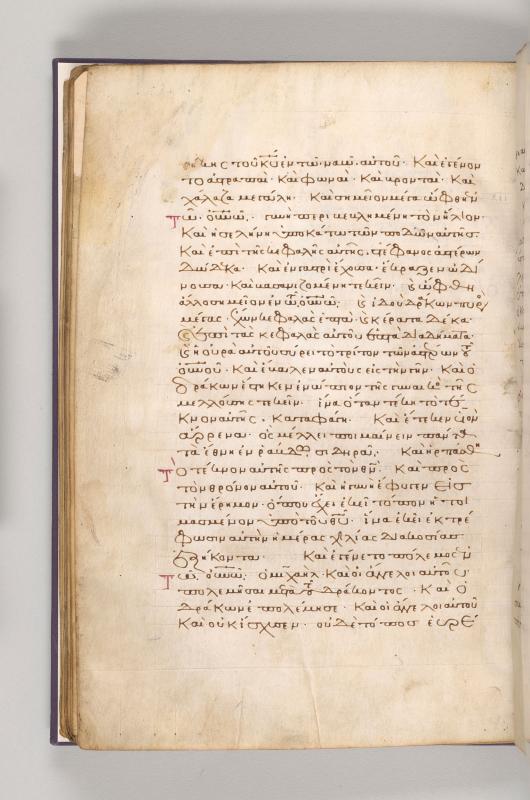 θήκης τοῦ κῡ ἐν τῶ ναῶ αὐτοῦ· Καὶ ἐγένον
το ἀστραπαὶ· Καὶ φωναὶ· Καὶ βρονταὶ· Καὶ
χάλαζα μεγάλη· Καὶ σημεῖον μέγα ὤφθη ἐν
τῶ οὐνῶ· γυνὴ περιβεβλημένη τὸν ἥλιον·
Καὶ ἡ σελήνη ὑποκάτω τῶν ποδῶν αὐτῆς·
Καὶ ἐπὶ τῆς κεφαλῆς αὐτῆς, στέφανος ἀστέρων
Δώδεκα· Καὶ ἐν γαστρὶ ἔχουσα· ἔκραζεν ὠδί
νουσα· Καὶ βασανιζομένη τεκεῖν· ϗ ὤφθη
ἄλλο σημεῖον ἐν τῶ οὐνῶ· ϗ ἰδοὺ δράκων πυρὸς
μέγας· ἔχων κεφαλὰς ἑπτά· ϗ κέρατα δέκα·
ϗ ἐπὶ τὰς κεφαλὰς αὐτοῦ ἑπτὰ διαδήματα·
ϗ ἡ οὐρὰ αὐτοῦ σύρει τὸ τρίτον τῶν ἀστέρων τοῦ
οὐνοῦ· Καὶ ἔβαλεν αὐτοὺς εἰς τὴν γῆν· Καὶ ὁ
δράκων ἕστηκεν ἐνώπιον τῆς γυναικὸς τῆς
μελλούσης τεκεῖν· ἵνα ὅταν τέκη τὸ τέ
κνον αὐτῆς, καταφάγη· Καὶ ἔτεκεν υἱὸν
ἄρρενα· ὃς μέλλει ποιμαίνειν πάντα
τὰ ἔθνη ἐν ῥάβδω σιδηρᾶ· Καὶ ἡρπάσθη
τὸ τέκνον αὐτῆς πρὸς τὸν θν̄· Καὶ πρὸς
τὸν θρόνον αὐτοῦ· Καὶ ἡ γυνὴ ἔφυγεν εἰς
τὴν ἔρημον· ὅπου ἔχει ἐκεῖ τόπον ἡτοι
μασμένον ὑπὸ τοῦ θῡ· ἵνα ἐκεῖ ἐκτρέ
φωσιν αὐτὴν ἡμέρας χιλίας διακοσίας
ἑξήκοντα· Καὶ ἐγένετο πόλεμος ἐν
τῶ οὐνῶ· ὁ μιχαὴλ· Καὶ οἱ ἄγγελοι αὐτοῦ
πολεμῆσαι μετὰ τοῦ δράκοντος· Καὶ ὁ
δράκων ἐπολέμησε· Καὶ οἱ ἄγγελοι αὐτοῦ
Καὶ οὐκ ἴσχυσεν· οὐδὲ τόπος εὑρέ